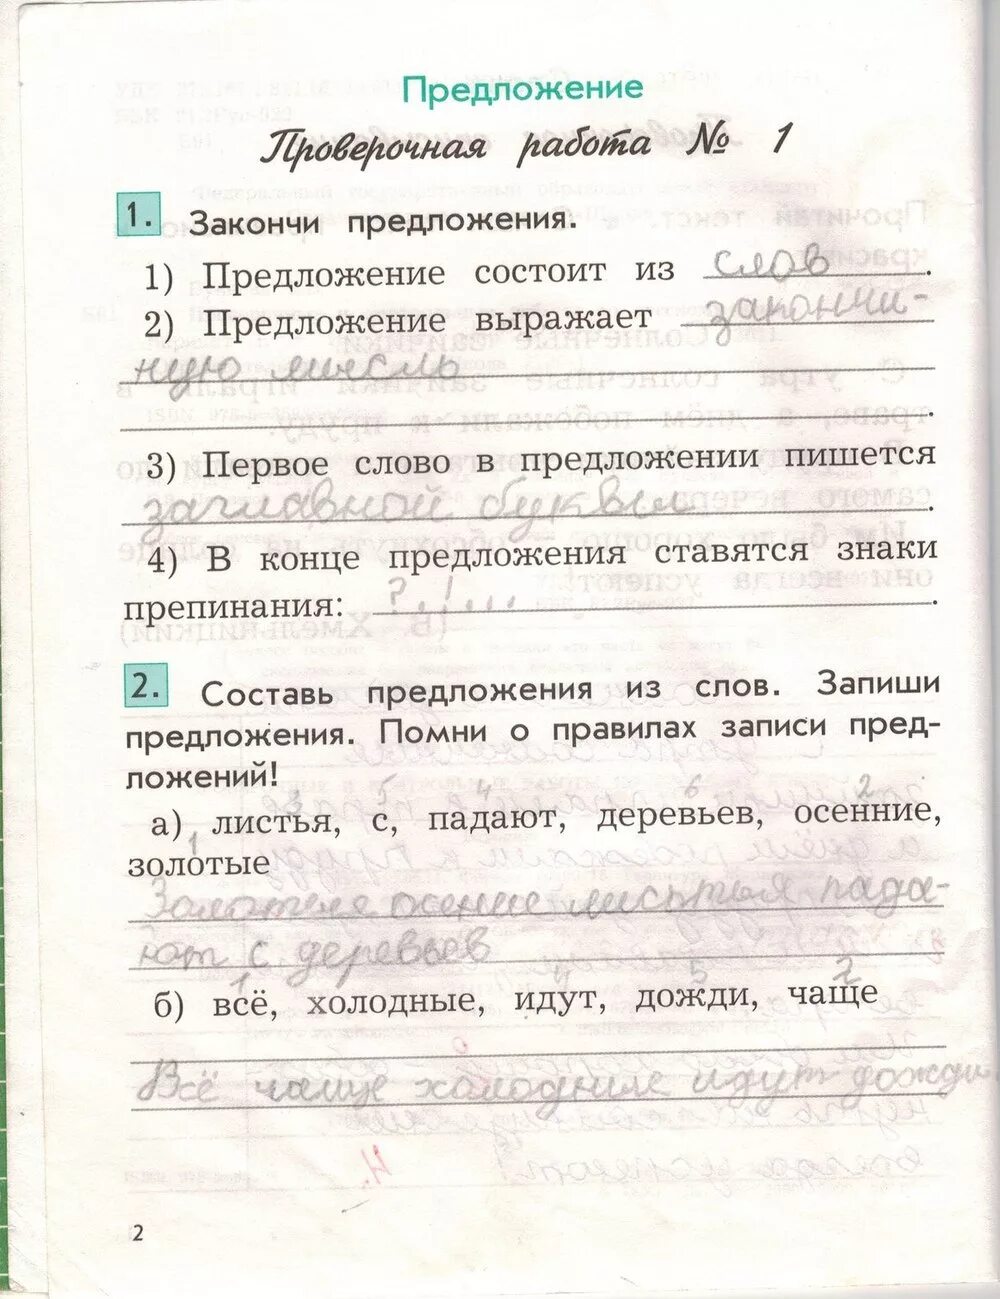 Предложение
Проверочная работа № 1
1. Закончи предложения.
1) Предложение состоит из слов.
2) Предложение выражает закончи-
ную мысль
.
3) Первое слово в предложении пишется
заглавной буквы.
4) В конце предложения ставятся знаки
препинания: ? . ! ... .
2. Составь предложения из слов. Запиши
предложения. Помни о правилах записи пред-
ложений!
3 5 4 6 2
а) листья, с, падают, деревьев, осенние,
1
золотые
Золотыя осение листья пада-
ют с деревьев
1 4 5 2
б) всё, холодные, идут, дожди, чаще
Всё чаще холодные идут дожди
2